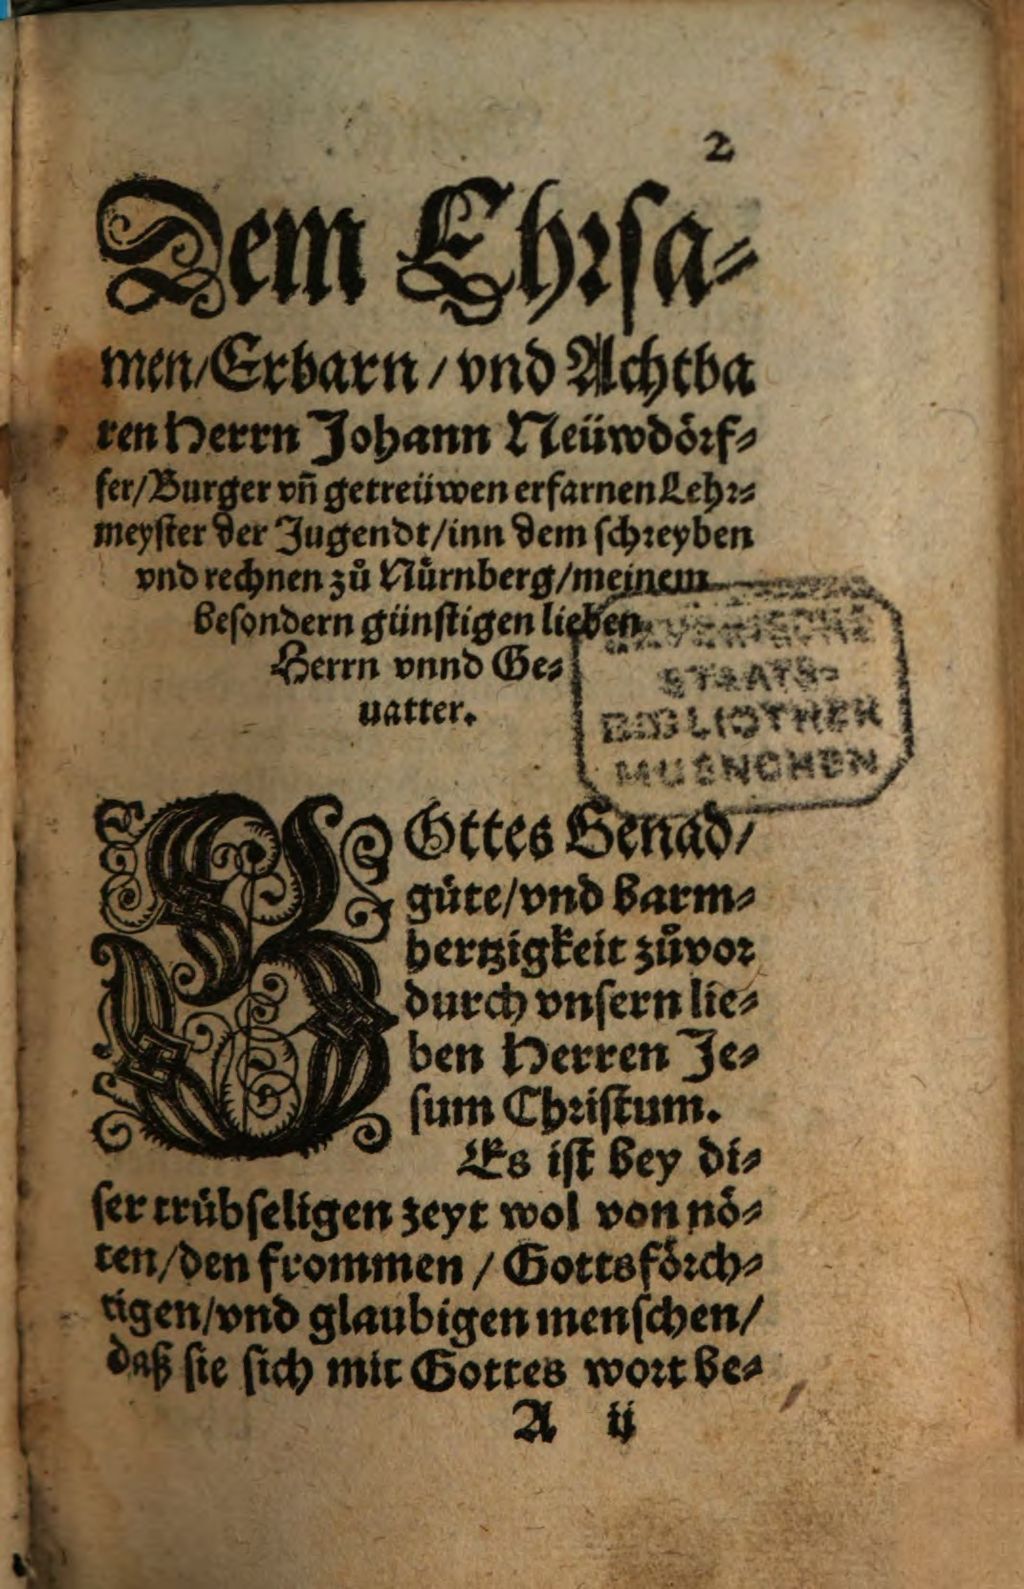 2
Dem Ehrsa⸗
men/Erbarn/vnd Achtba
ren Herrn Johann Neüwdörf⸗
fer/Burger vñ getreüwen erfarnen Lehr⸗
meyster der Jugendt/inn dem schreyben
vnd rechnen zů Nürnberg/meinem
besondern günstigen lieben
Herrn vnnd Ge⸗
uatter.
BAYERISCHE
STAATS-
BIBLIOTHEK
MUENCHEN
GOttes Genad/
güte/vnd barm⸗
hertzigkeit zůvor
durch vnsern lie⸗
ben Herren Je⸗
sum Christum.
Es ist bey di⸗
ser trübseligen zeyt wol von nö⸗
ten/den frommen/Gottsförch⸗
tigen/vnd glaubigen menschen/
daß sie sich mit Gottes wort be⸗
A ij